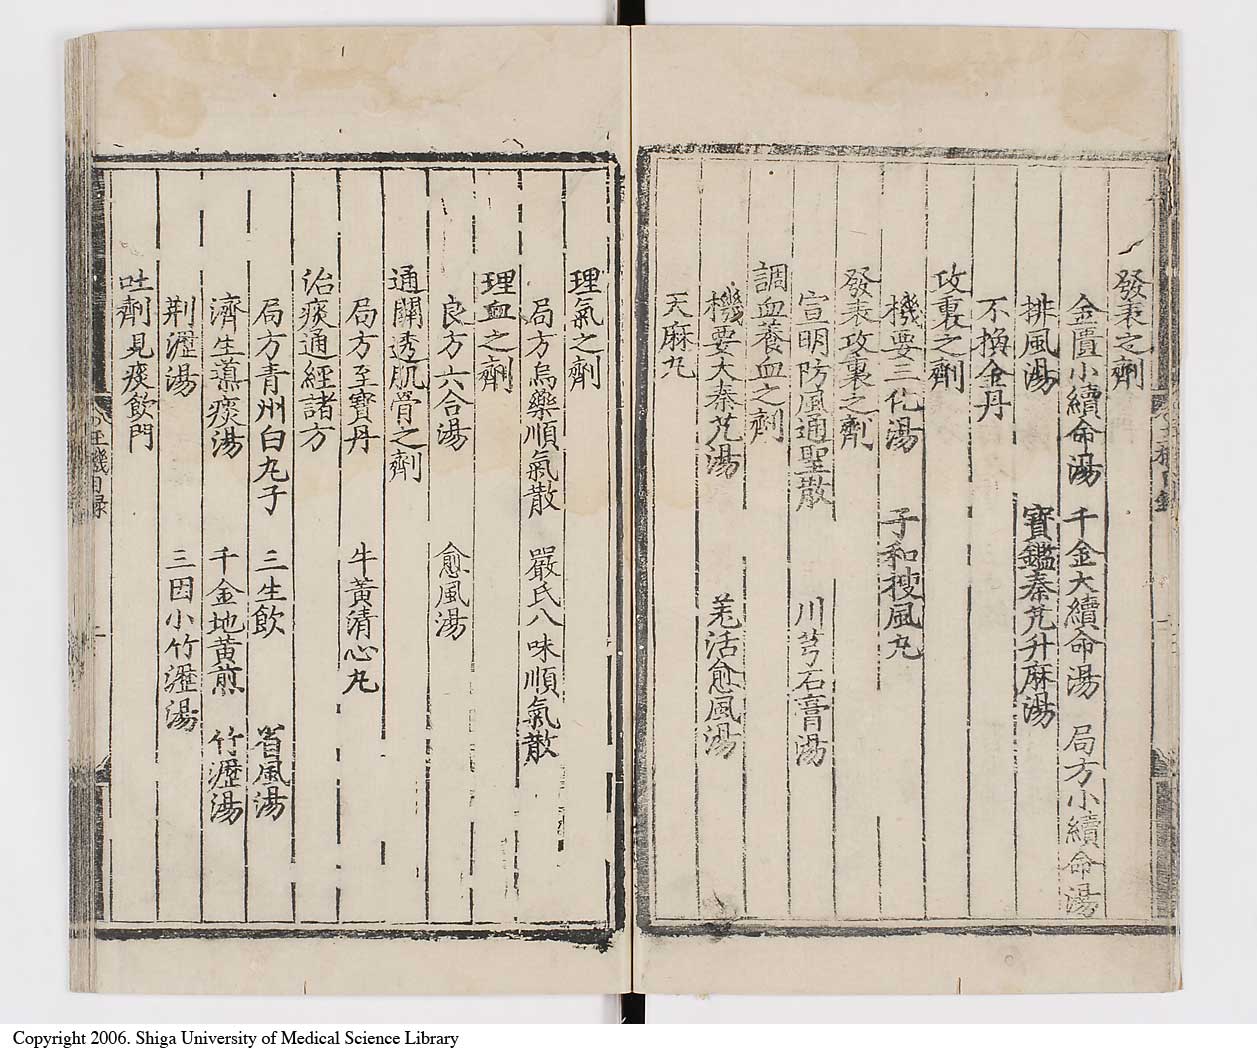 發表之劑
金匱小續命湯 千金大續命湯 局方小續命湯
排風湯 寶鑑秦艽升麻湯
不換金丹
攻裏之劑
機要三化湯 子和搜風丸
發表攻裏之劑
宣明防風通聖散 川芎石膏湯
調血養血之劑
機要大秦艽湯 羌活愈風湯
天麻丸
理氣之劑
局方烏藥順氣散 嚴氏八味順氣散
理血之劑
良方六合湯 愈風湯
通關透肌骨之劑
局方至寶丹 牛黃清心丸
治痰通經諸方
局方青州白丸子 三生飲 省風湯
濟生滌痰湯 千金地黃煎 竹瀝湯
荆瀝湯 三因小竹瀝湯
吐劑見痰飲門
玉機目錄
Copyright 2006. Shiga University of Medical Science Library